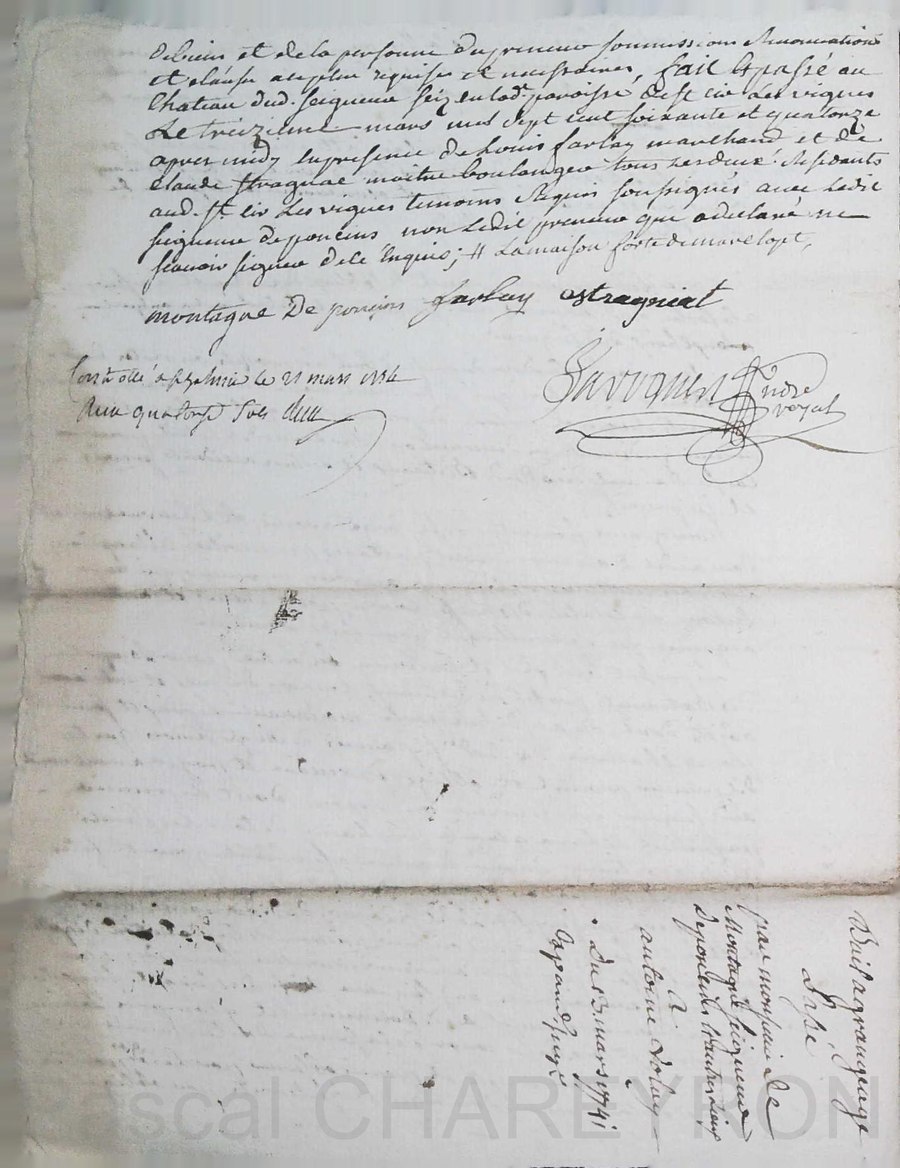 et de la personne du preneur soumissions Renonciations
et clause a ce plus requises et necessaires, fait et passé au
Chateau dud. Seigneur en lad. paroisse de st cir Les vignes
Le treizieme mars mil sept cent soixante et quatorze
apres midy en presence de Louis farlay marchand et de
Claude Stragnat maitre boulanger tous Residants
aud. st. cir Les vignes temoins Requis soussignés avec Ledit
seigneur de poncins non Ledit preneur que a declaré ne
scavoir signer de ce Enquis; # La maison forte de
montagne De poncins farlay astragniat
Controllé a le 21 mars 1774
Reçu quatorze sols
notre
royal
Bail a grangeage
passé
par monsieur De
Montagne seigneur
De poncins et autres lieux
a
antoine
Du 13 mars 1774
Pascal CHAREYRON